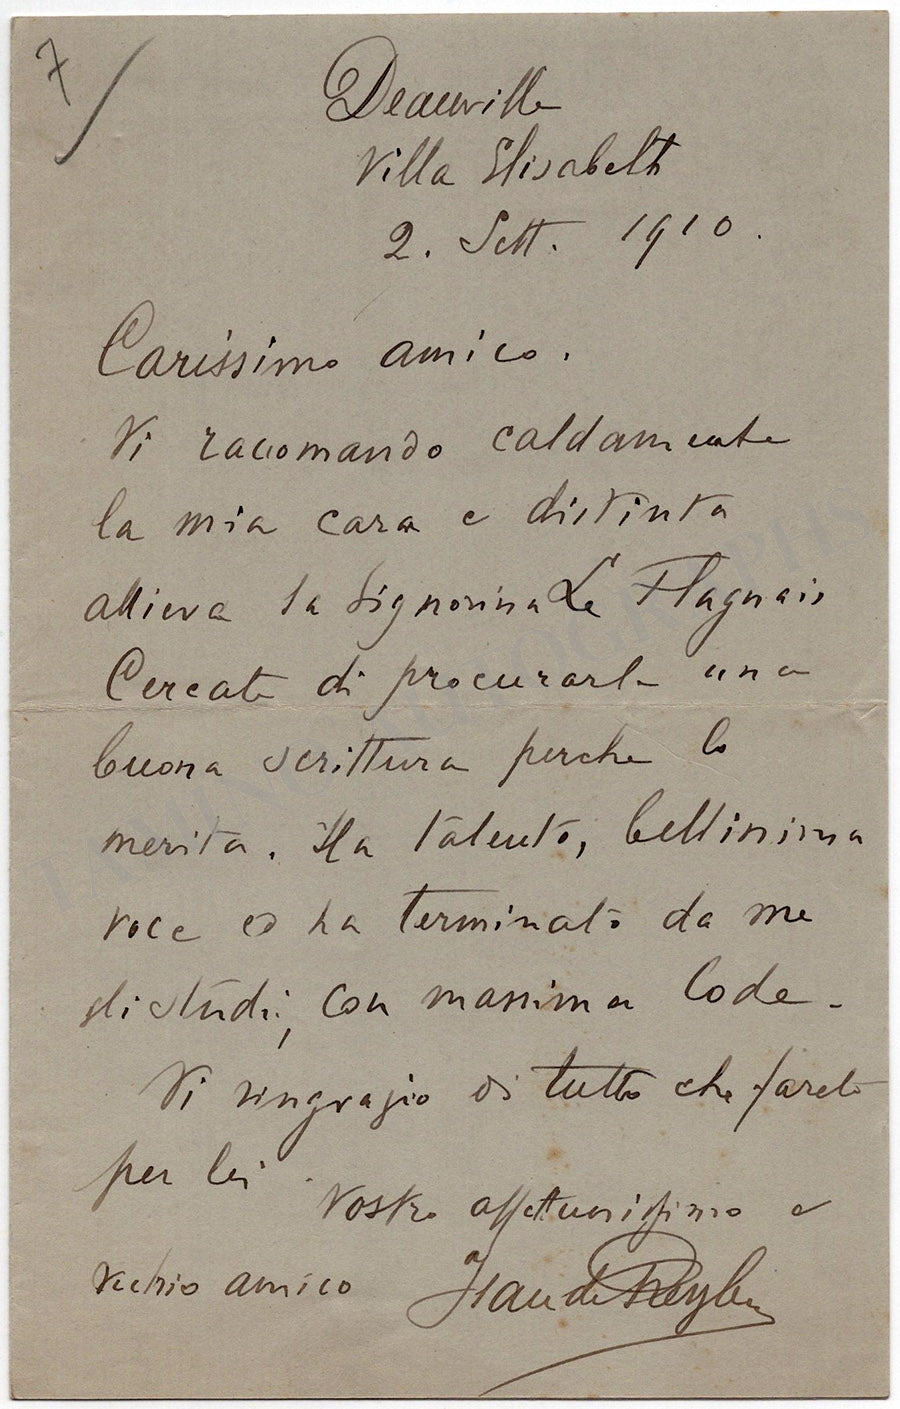 7
Deauville
Villa Elisabeth
2. Sett. 1910.
Carissimo amico.
Vi raccomando caldamente
la mia cara e distinta
allieva la Signorina Le Flaguais
Cercate di procurarle una
buona scrittura perche lo
merita. Ha talento, bellissima
voce ed ha terminato da me
gli studi, con massima lode -
Vi ringrazio di tutto che farete
per lei.
Vostro affettuosissimo e
vecchio amico Jean de Reszke